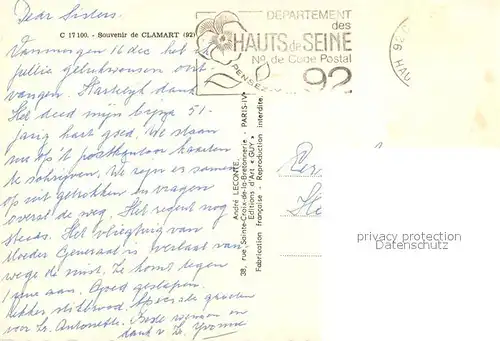 Dear Sisters.
C 17100. - Souvenir de CLAMART (92)
Vanmorgen 16 dec. het
jullie gelukwensen ont-
vangen. Hartelijk dank
Het deed mijn bijna 51-
jarig hart goed. We staan
nu op 't postkantoor kaarten
te schrijven. We zijn er samen
op uit getrokken en vragen
overal de weg. Het regent nog
steeds. Het vliegtuig van
Moeder Generaal is verlaat van
wege de mist. Ze komt tegen
1 ure aan. Goed geslapen.
lekker stokbrood. Speciale groeten
voor Zr. Antoinette. Beste wensen en
dank v Zr Yvonne
DEPARTEMENT
des
HAUTS de SEINE
No. de Code Postal
PENSEZ-Y
92
92
HAU
André LECONTE
38, rue Sainte-Croix-de-la-Bretonnerie - PARIS-IV
Editions d'Art « GUY »
Fabrication française - Reproduction interdite.
privacy protection
Datenschutz